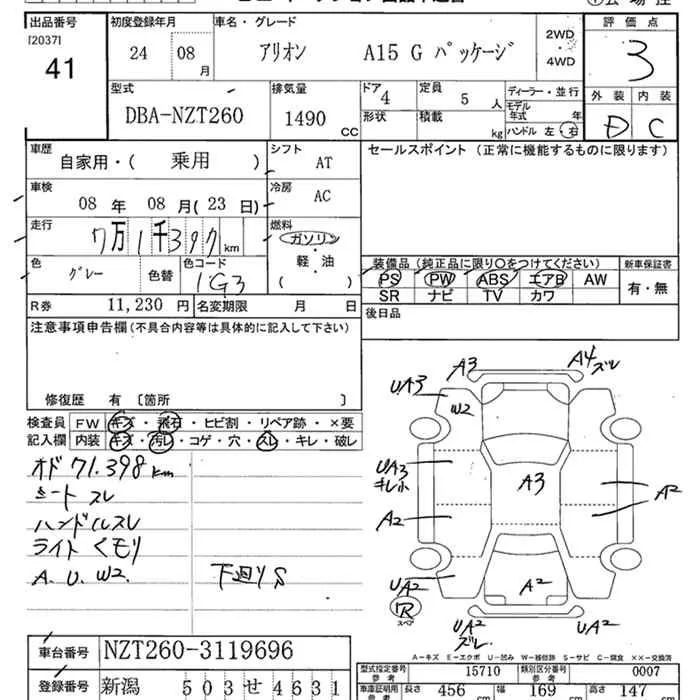 出品番号 初度登録年月 車名・グレード 評価点
[2037]
41 24 08月 アリオン A15 G パッケージ 2WD・4WD 3
型式 排気量 ドア 4 定員 5人 ディーラー・並行 外装 内装
DBA-NZT260 1490 CC 形状 積載 kg モデル年式 年 D C
ハンドル 左 右
車歴 自家用・( 乗用 ) シフト AT セールスポイント (正常に機能するものに限ります)
車検 08年 08月(23日) 冷房 AC
走行 7万1千397km 燃料 ガソリン・軽・油 ( )
色 グレー 色替 色コード 1G3
装備品(純正品に限り○をつけてください) 新車保証書
PS PW ABS エアB AW 有・無
SR ナビ TV カワ
R券 11,230円 名変期限 月 日 後日品
注意事項申告欄(不具合内容等は具体的に記入して下さい)
修復歴 有 [箇所 ]
検査員 FW キズ・飛石・ヒビ割・リペア跡・×要
記入欄 内装 キズ・汚レ・コゲ・穴・スレ・キレ・破レ
オド 71.398km
シート スレ
ハンドルスレ
ライト くモリ
A. U. W2. 下廻りS
A3 A4 ズレ
UA3 W2
UA3 キレ小 A3 A2
A2
UA2 A2
R スペア UA2 ズレ UA2
A-キズ E-エクボ U-凹み W-補修跡 S-サビ C-腐食 ××-交換済
車台番号 NZT260-3119696
登録番号 新潟 503 せ 4631
型式指定番号 参考 15710 類別区分番号 参考 0007
車庫証明用 参考 長さ 456 cm 幅 169 cm 高さ 147 cm